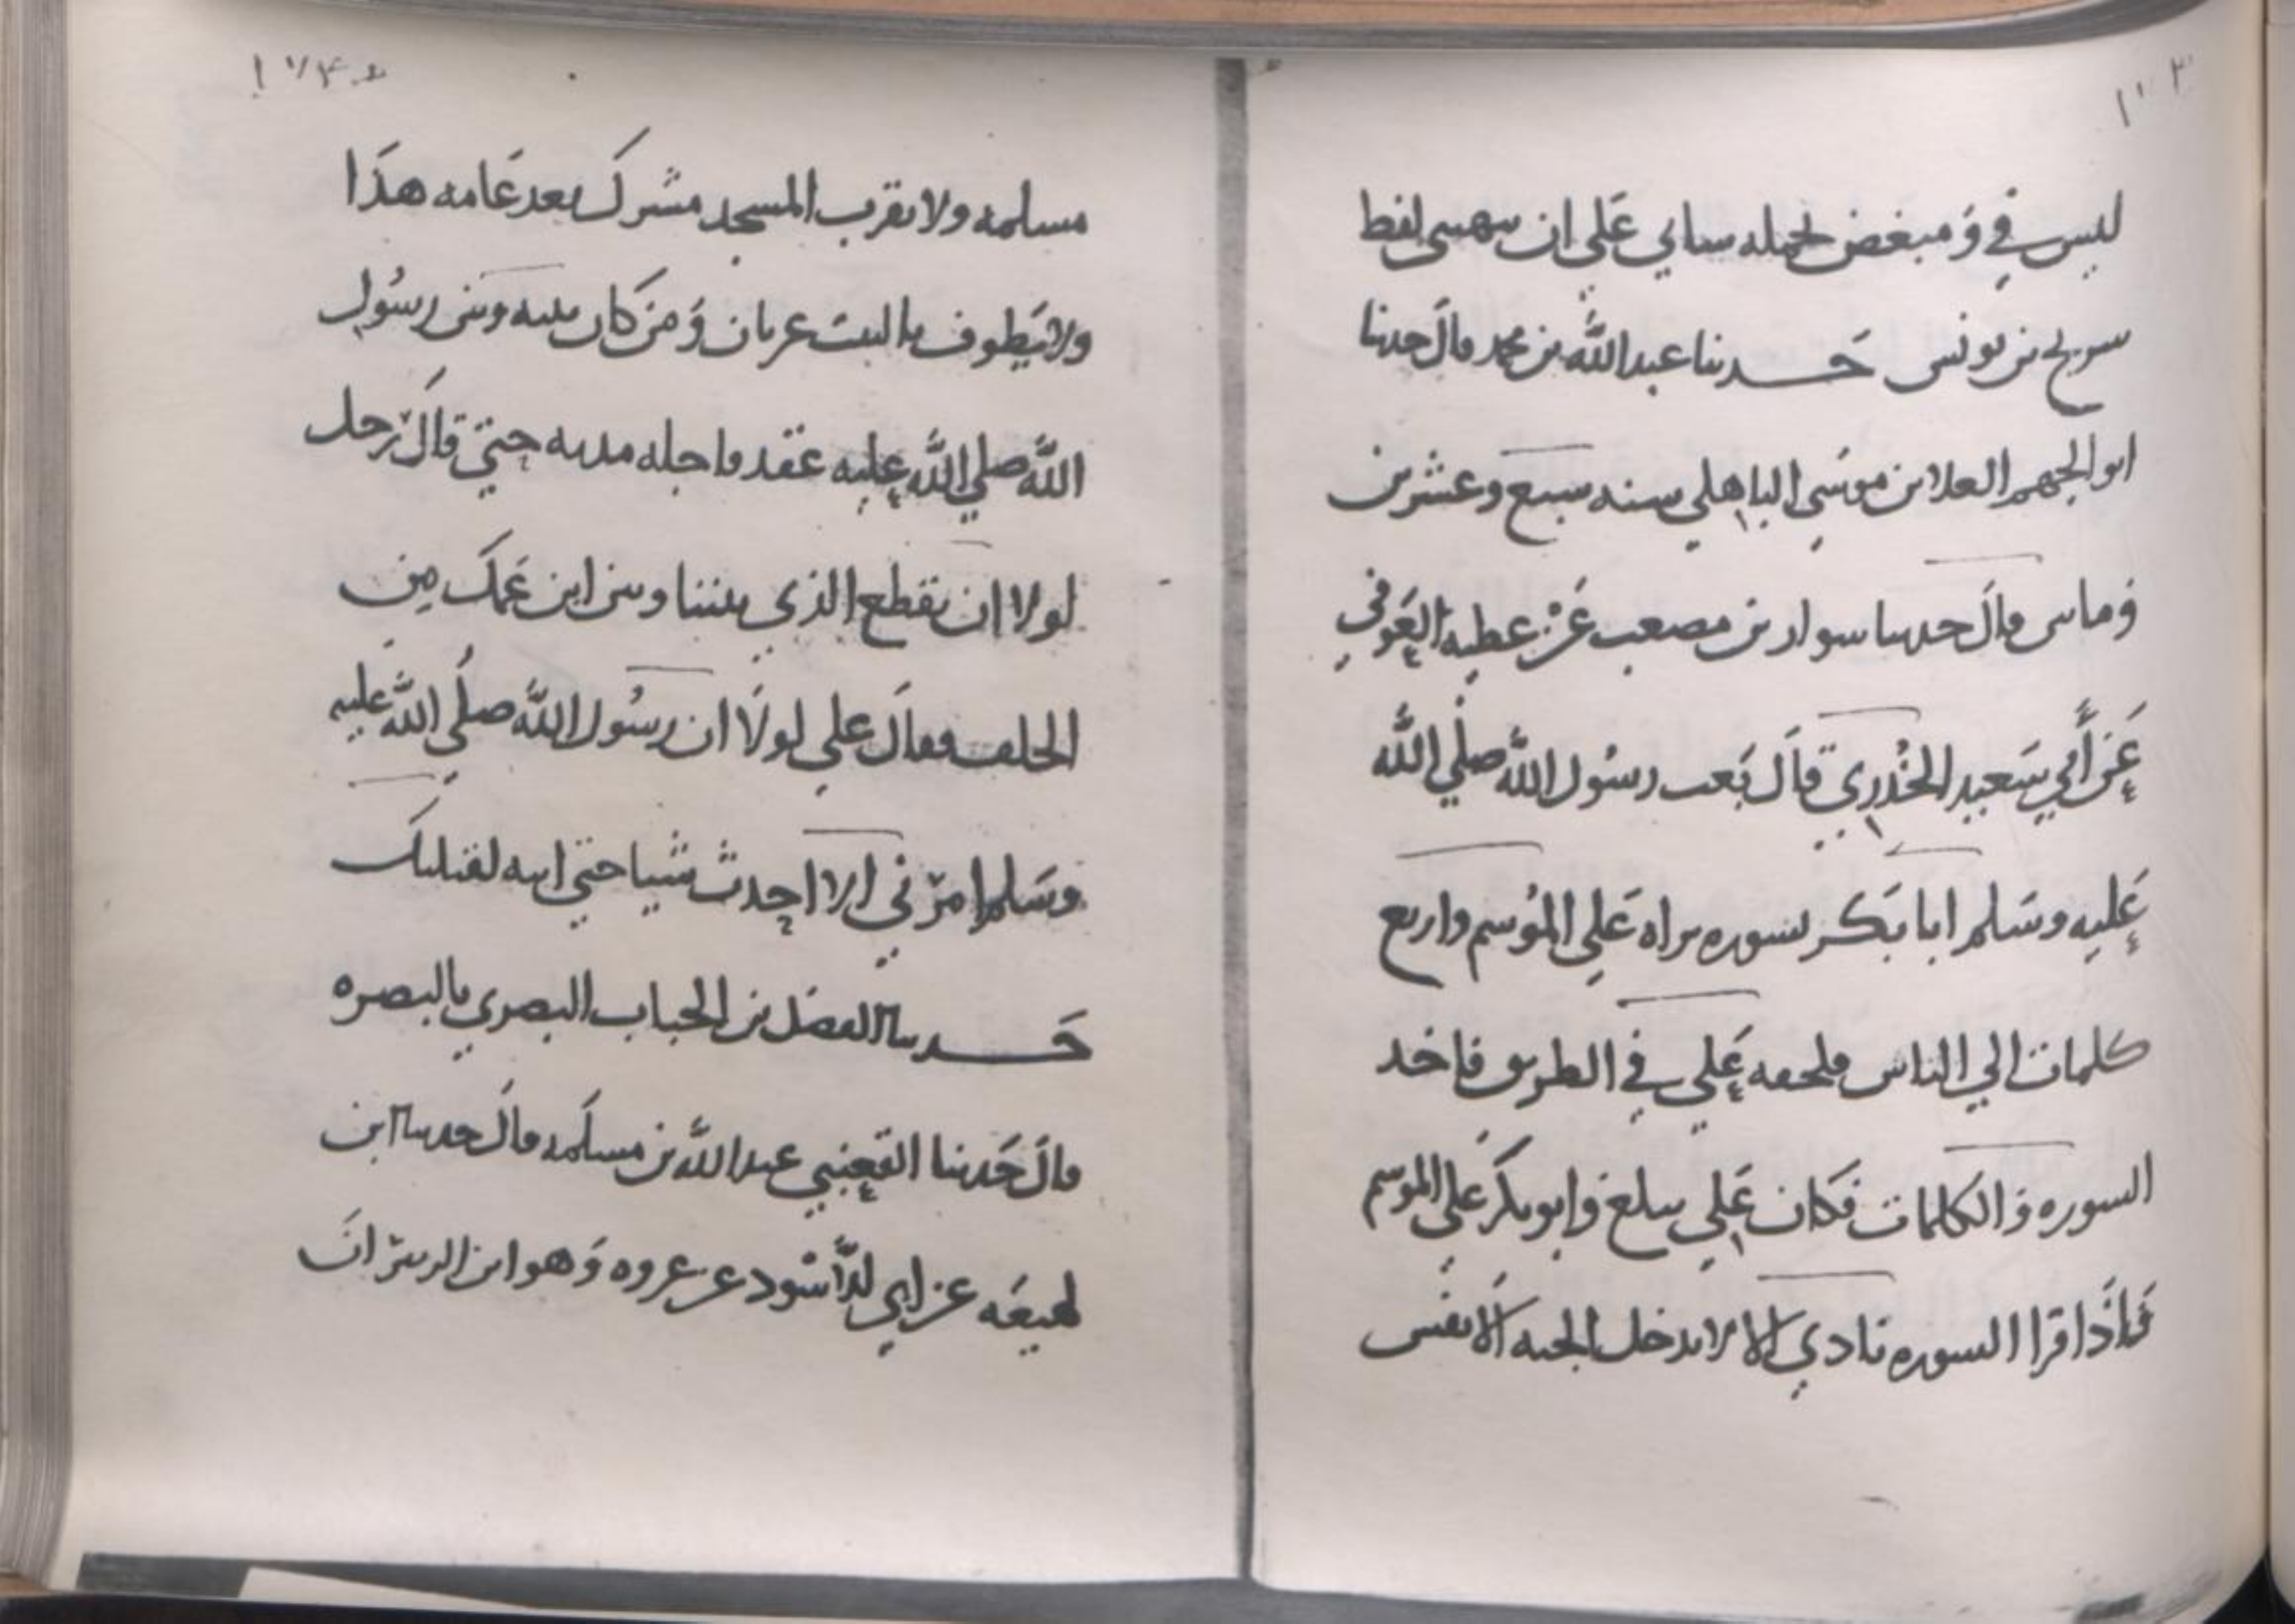 ١٧٣
ليس في ومبغض يحمله شناني على ان يبهتني لفظ
سريج بن يونس حدثنا عبد الله بن محمد قال حدثنا
ابو الجهم العلا بن موسي الباهلي سنه سبع وعشرين
وماتين قال حدثنا سوار بن مصعب عن عطيه العوفي
عن أبي سعيد الخدري قال بعث رسول الله صلي الله
عليه وسلم ابا بكر بسوره براه علي الموسم واربع
كلمات الي الناس فلحقه علي في الطريق فاخذ
السوره والكلمات فكان علي يبلغ وابو بكر علي الموسم
فاذا قرا السوره نادي الا لا يدخل الجنه الا نفس
١٧٤
مسلمه ولا يقرب المسجد مشرك بعد عامه هذا
ولا يطوف بالبيت عريان ومن كان بينه وبين رسول
الله صلي الله عليه عقد فاجله مدته حتي قال رجل
لولا ان نقطع الذي بيننا وبين ابن عمك من
الحلف فقال علي لولا ان رسول الله صلي الله عليه
وسلم امرني الا احدث شيا حتي اتيه لقتلتك
حدثنا الفضل بن الحباب البصري بالبصره
قال حدثنا القعنبي عبد الله بن مسلمه قال حدثنا ابن
لهيعه عن ابي الأسود عن عروه وهو ابن الزبير ان